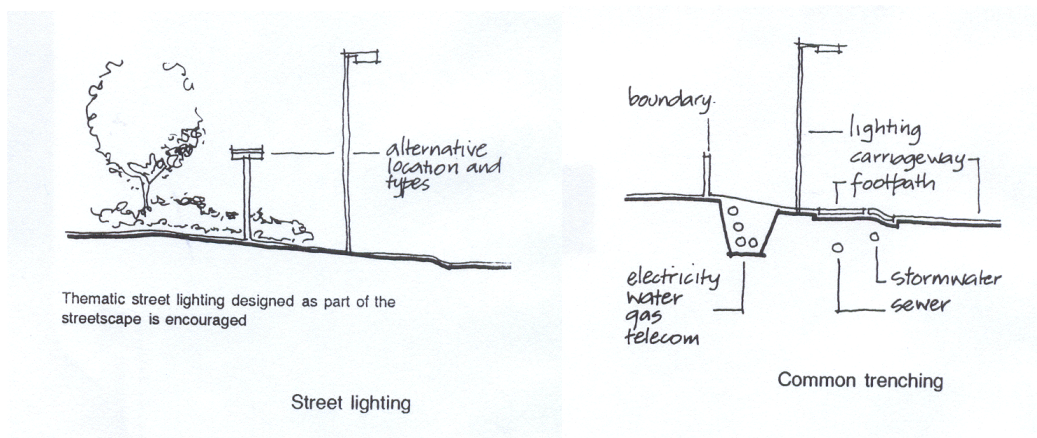 alternative
location and
types
Thematic street lighting designed as part of the
streetscape is encouraged
Street lighting
boundary.
lighting
carriageway
footpath
electricity
water
gas
telecom
stormwater
sewer
Common trenching